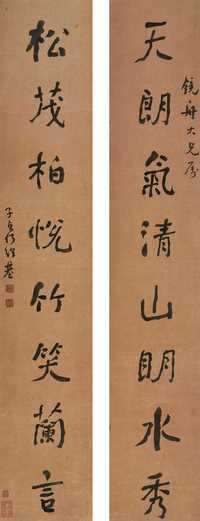 鏡舟大兄屬
天朗氣清山明水秀
松茂柏悅竹笑蘭言
子貞何紹基